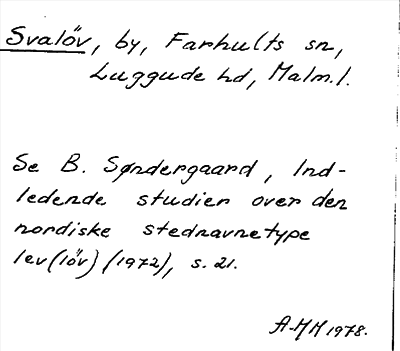 Svalöv, by, Farhults sn,
Luggude hd, Malm. l.
Se B. Søndergaard, Ind-
ledende studier over den
nordiske stednavnetype
lev (löv) (1972), s. 21.
A-MH 1978.